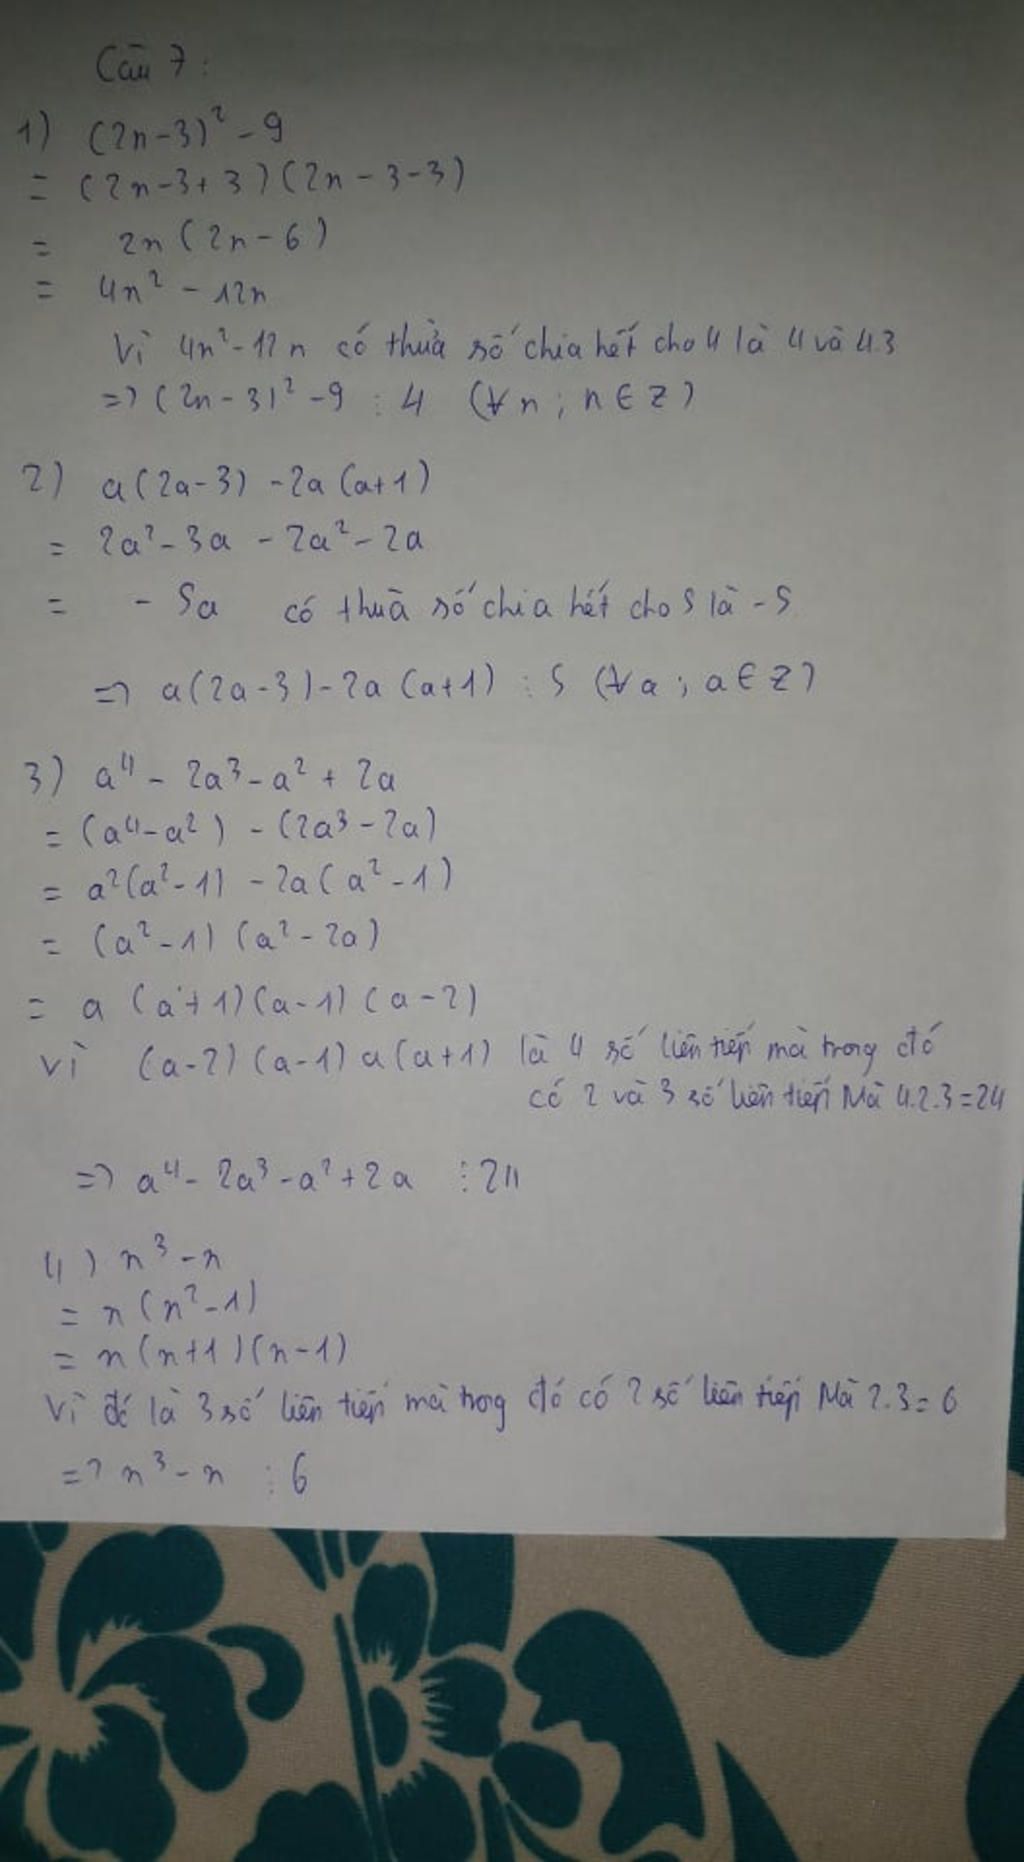 Câu 7:
1) (2n-3)² - 9
= (2n-3+3)(2n-3-3)
= 2n(2n-6)
= 4n² - 12n
Vì 4n²-12n có thừa số chia hết cho 4 là 4 và 4.3
=> (2n-3)² -9 ⋮ 4 (∀n; n∈Z)
2) a(2a-3) -2a(a+1)
= 2a²-3a - 2a²-2a
= - 5a có thừa số chia hết cho 5 là -5
=> a(2a-3)-2a(a+1) ⋮ 5 (∀a; a∈Z)
3) a⁴ - 2a³ - a² + 2a
= (a⁴-a²) - (2a³-2a)
= a²(a²-1) - 2a(a²-1)
= (a²-1)(a²-2a)
= a (a+1)(a-1)(a-2)
Vì (a-2)(a-1)a(a+1) là 4 số liên tiếp mà trong đó
có 2 và 3 số liên tiếp Mà 4.2.3=24
=> a⁴- 2a³-a²+2a ⋮ 24
4) n³-n
= n(n²-1)
= n(n+1)(n-1)
Vì đó là 3 số liên tiếp mà trong đó có 2 số liên tiếp Mà 2.3=6
=> n³-n ⋮ 6